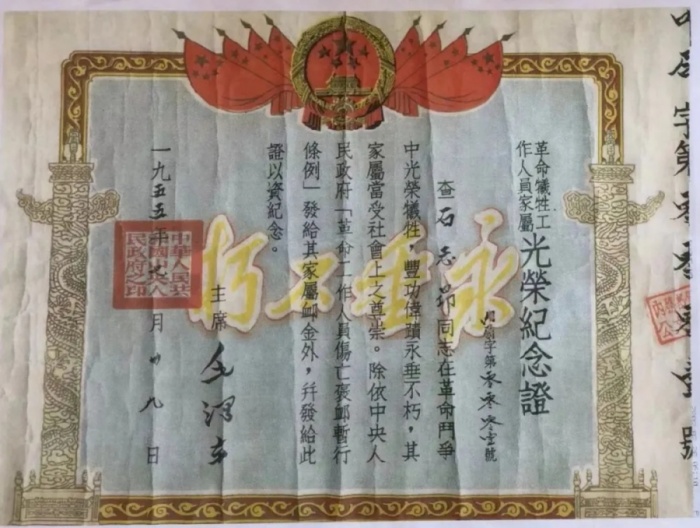 字第零零零壹號
革命犧牲工
作人員家屬
光榮紀念證
字第零零零壹號
查石志昂同志在革命鬥爭
中光榮犧牲，豐功偉蹟永垂不朽，其
家屬當受社會上之尊崇。除依中央人
民政府「革命工作人員傷亡褒卹暫行
條例」發給其家屬卹金外，并發給此
證以資紀念。
主席 毛澤東
一九五五年月廿九日
永垂不朽
中華人民共
和國中央人
民政府之印